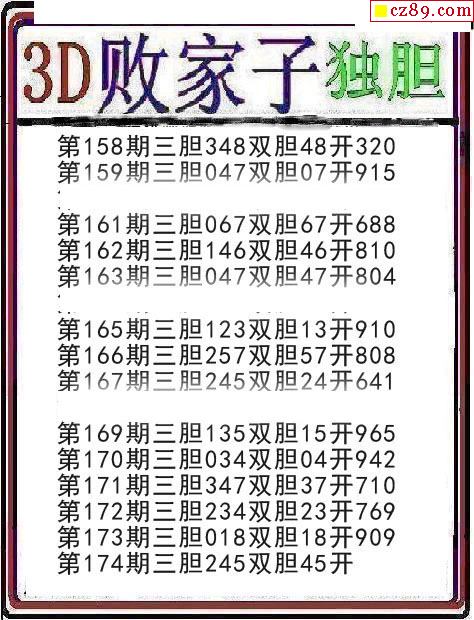 cz89.com
3D败家子独胆
第158期三胆348双胆48开320
第159期三胆047双胆07开915
第161期三胆067双胆67开688
第162期三胆146双胆46开810
第163期三胆047双胆47开804
第165期三胆123双胆13开910
第166期三胆257双胆57开808
第167期三胆245双胆24开641
第169期三胆135双胆15开965
第170期三胆034双胆04开942
第171期三胆347双胆37开710
第172期三胆234双胆23开769
第173期三胆018双胆18开909
第174期三胆245双胆45开